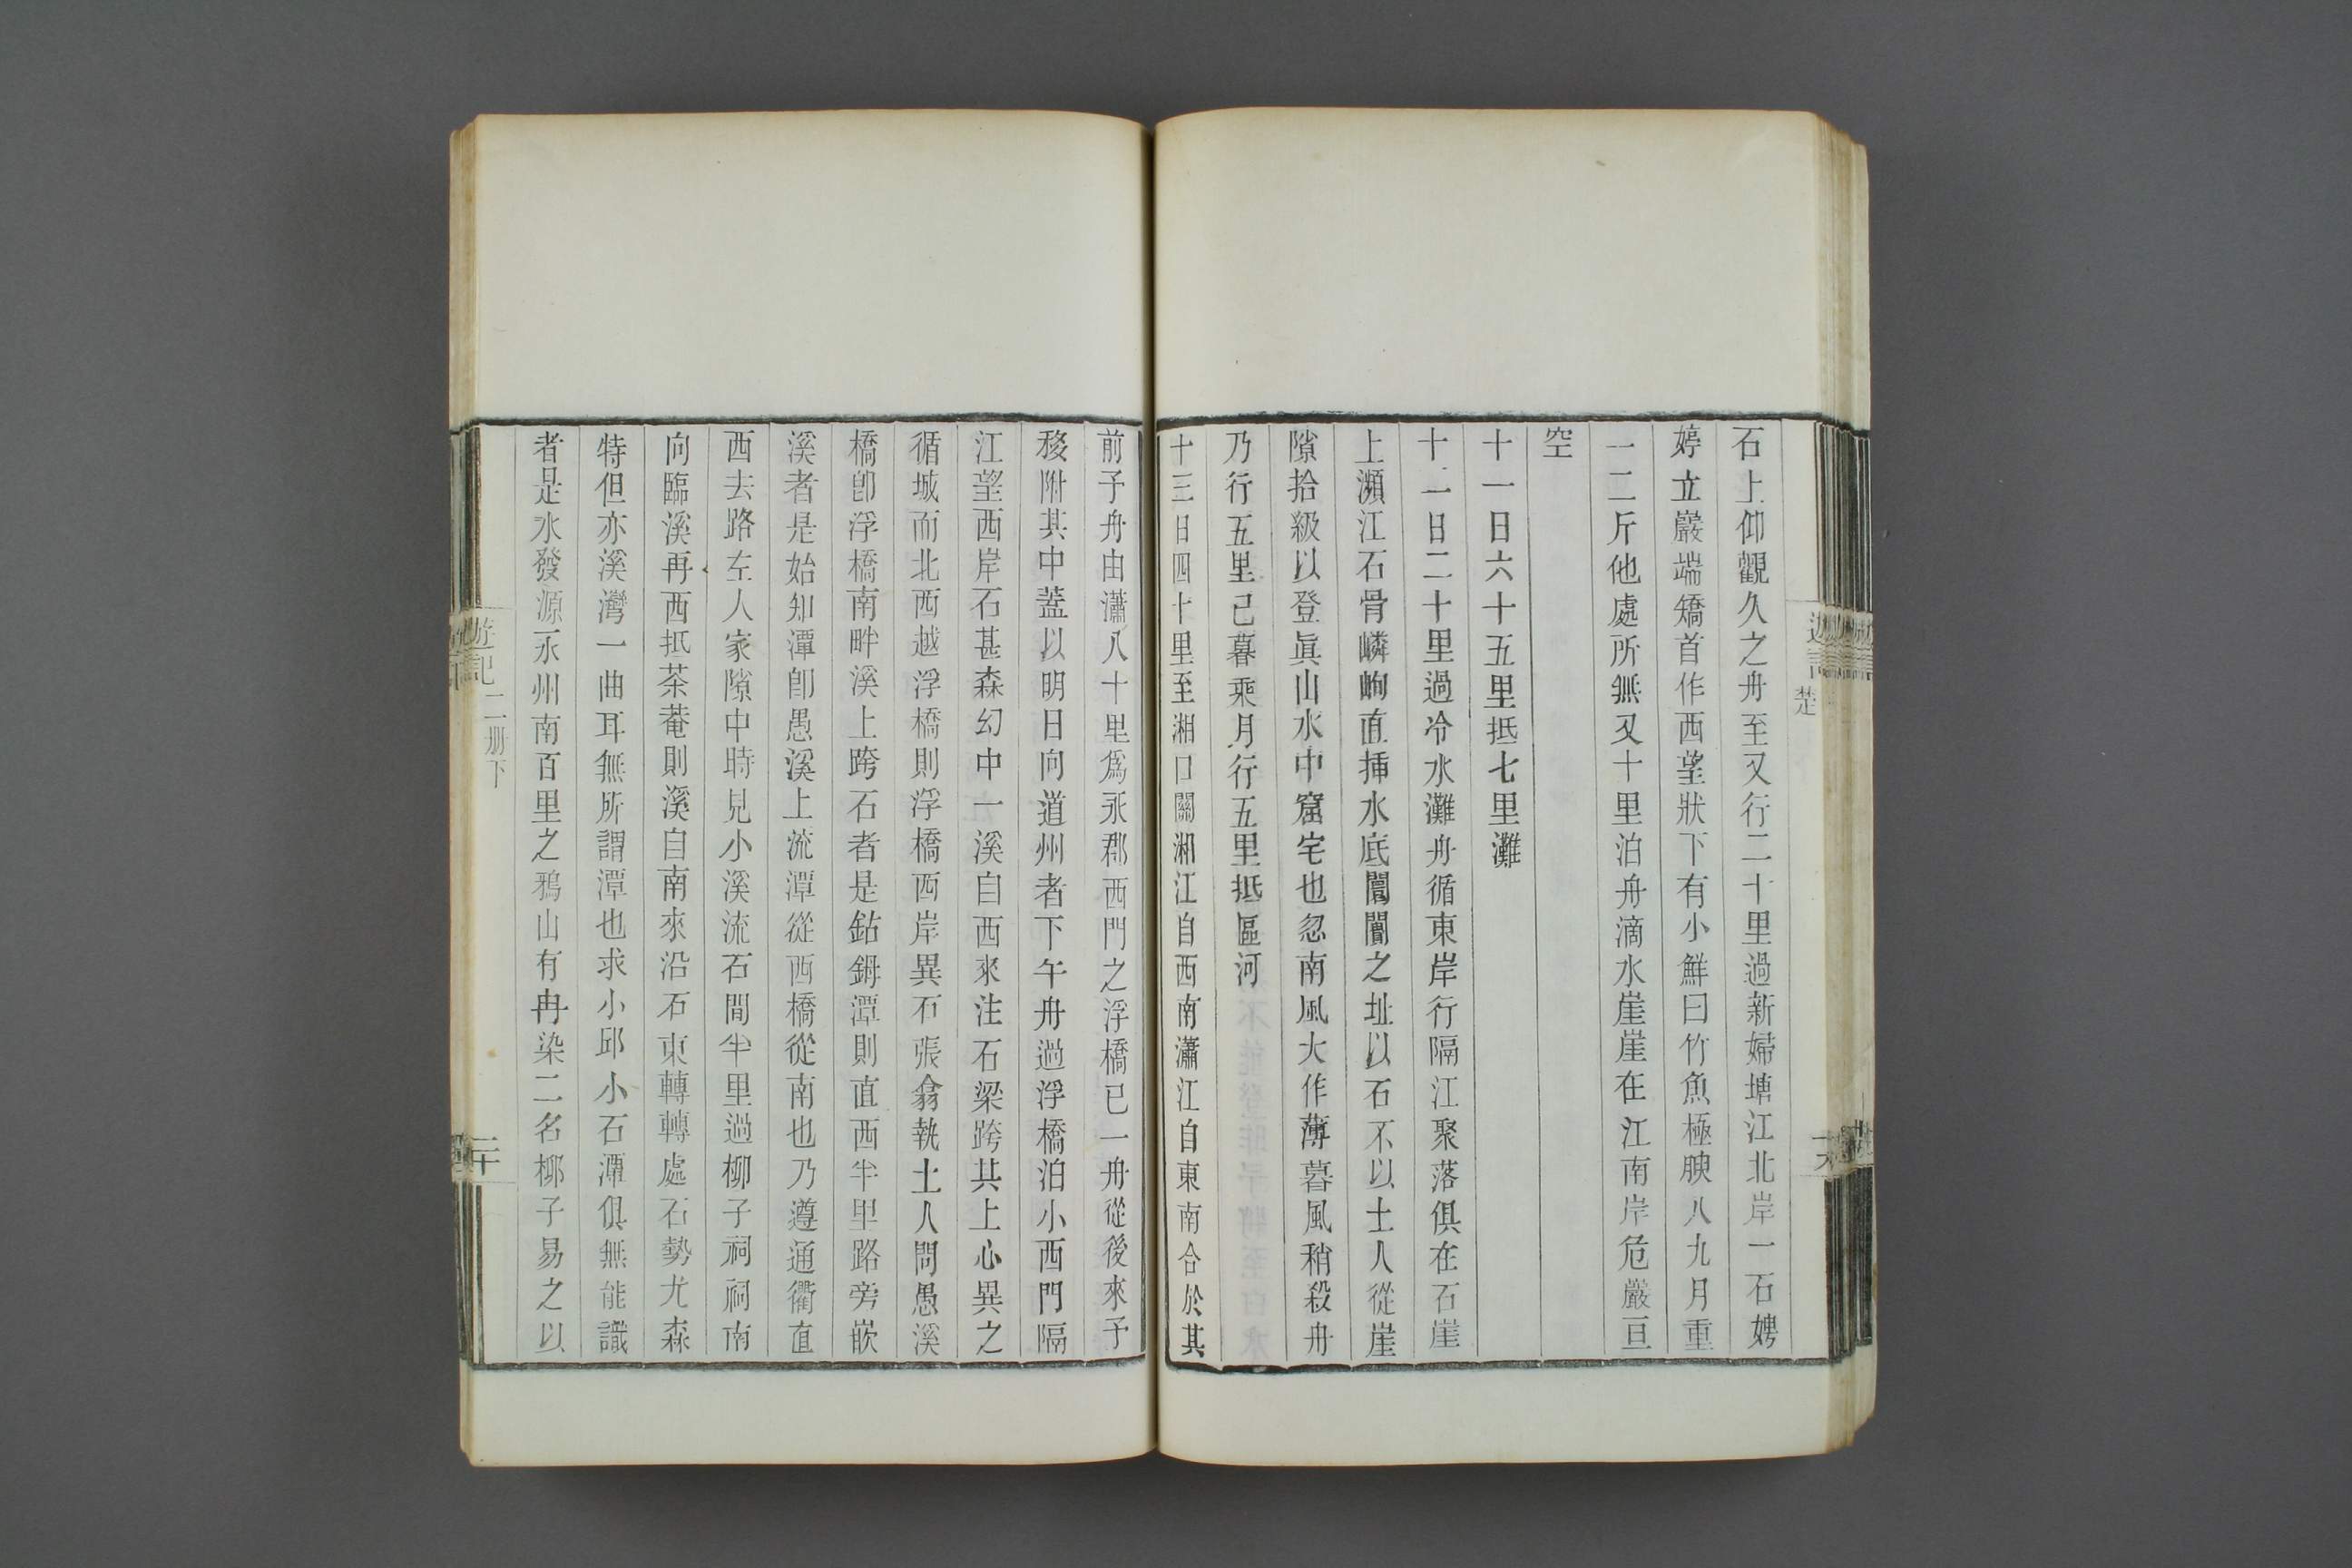 石上仰觀久之舟至又行二十里過新婦塘江北岸一石娉
婷立巖端矯首作西望狀下有小鮮曰竹魚極腴八九月重
一二斤他處所無又十里泊舟滴水崖崖在江南岸危巖亘
空
十一日六十五里抵七里灘
十二日二十里過冷水灘舟循東岸行隔江聚落俱在石崖
上瀕江石骨嶙峋直插水底闤闠之址以石不以土人從崖
隙拾級以登眞山水中窟宅也忽南風大作薄暮風稍殺舟
乃行五里已暮乘月行五里抵區河
十三日四十里至湘口關湘江自西南瀟江自東南合於其
前予舟由瀟八十里爲永郡西門之浮橋已一舟從後來予
移附其中蓋以明日向道州者下午舟過浮橋泊小西門隔
江望西岸石甚森幻中一溪自西來注石梁跨其上心異之
循城而北西越浮橋則浮橋西岸異石張翕執土人問愚溪
橋卽浮橋南畔溪上跨石者是鈷鉧潭則直西半里路旁嵌
溪者是始知潭卽愚溪上流潭從西橋從南也乃遵通衢直
西去路左人家隙中時見小溪流石間半里過柳子祠祠南
向臨溪再西抵茶菴則溪自南來沿石東轉轉處石勢尤森
特但亦溪灣一曲耳無所謂潭也求小邱小石潭俱無能識
者是水發源永州南百里之鴉山有冉染二名柳子易之以
遊記
二册下
二十